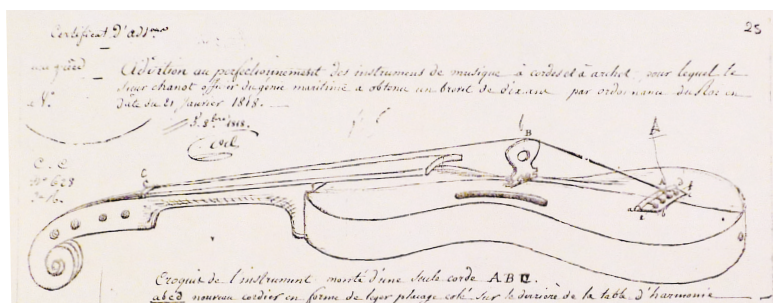 25
Certificat D'add.on
Addition au perfectionnement des instrumens de musique à cordes et à archet, pour lequel le
sieur chanot officier du génie maritime a obtenu un brevet de dix ans par ordonnance du Roi en
date du 21 Janvier 1818.
1818.
C
B
A
N° 628
a
Croquis de l'instrument monté d'une seule corde ABC.
abcd nouveau cordier en forme de leger placage colé sur le derrière de la table d'harmonie